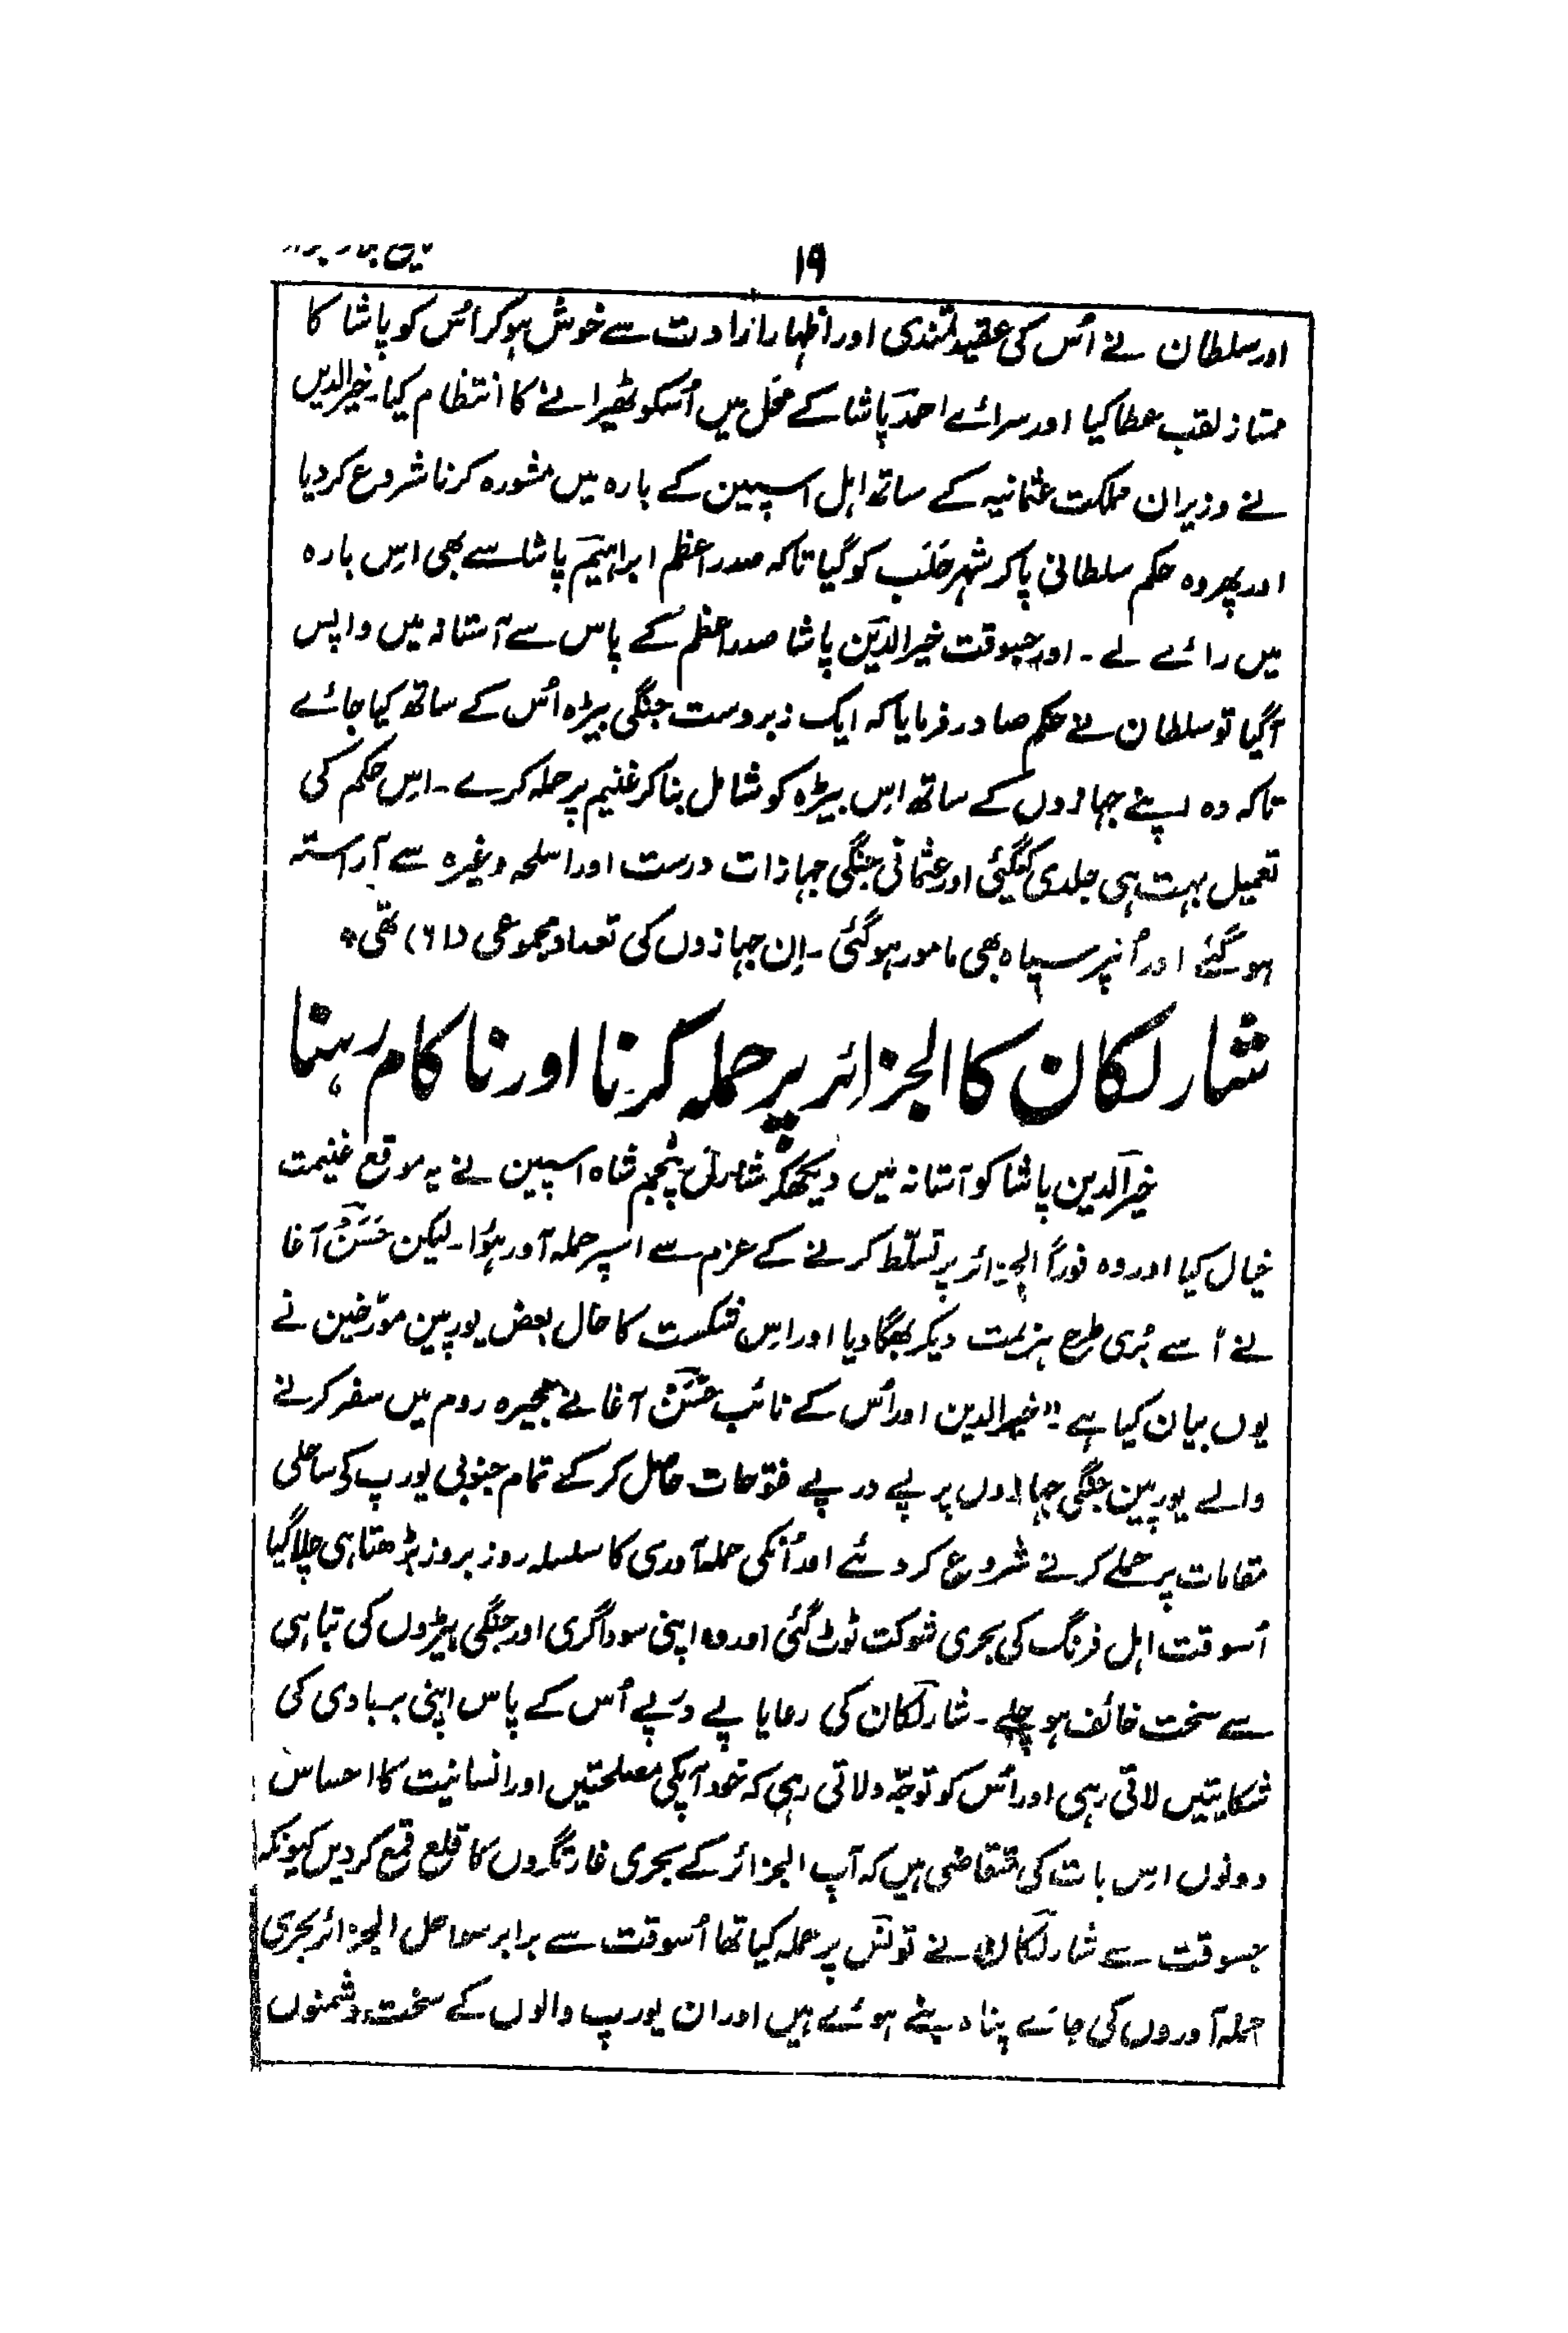 ۱۹
اور سلطان نے اُس کی عقیدتمندی اور اظہار ارادت سے خوش ہوکر اُس کو پاشا کا
ممتاز لقب عطا کیا اور سرائے احمد پاشا کے محل میں اُسکو ٹھیرانے کا انتظام کیا۔ خیرالدین
نے وزیران مملکت عثمانیہ کے ساتھ اہل اسپین کے بارہ میں مشورہ کرنا شروع کردیا
اور پھر وہ حکم سلطانی پاکر شہر حَلَب کو گیا تاکہ صدر اعظم ابراہیم پاشا سے بھی اِس بارہ
میں رائے لے۔ اور جسوقت خیرالدین پاشا صدر اعظم کے پاس سے آستانہ میں واپس
آگیا تو سلطان نے حکم صادر فرمایا کہ ایک زبردست جنگی بیڑہ اُس کے ساتھ کیا جائے
تاکہ وہ اپنے جہازوں کے ساتھ اِس بیڑہ کو شامل بناکر غنیم پر حملہ کرے۔ اِس حکم کی
تعمیل بہت ہی جلدی کیگئی اور عثمانی جنگی جہازات درست اور اسلحہ وغیرہ سے آراستہ
ہوگئے اور اُنپر سپاہ بھی مامور ہوگئی۔ اِن جہازوں کی تعداد مجموعی (۶۱) تھی*
شارلکان کا الجزائر پر حملہ کرنا اور ناکام رہنا
خیرالدین پاشا کو آستانہ میں دیکھکر شارل پنجم شاہ اسپین نے یہ موقع غنیمت
خیال کیا اور وہ فوراً الجزائر پر تسلّط کرنے کے عزم سے اُسپر حملہ آور ہؤا۔ لیکن حَسَنْ آغا
نے اُسے بُری طرح ہزیمت دیکر بھگا دیا اور اِس شکست کا حال بعض یورپین مورّخین نے
یوں بیان کیا ہے:" خیرالدین اور اُس کے نائب حَسَنْ آغا نے بحیرہ روم میں سفر کرنے
والے یورپین جنگی جہازوں پر پے در پے فتوحات حاصل کرکے تمام جنوبی یورپ کی ساحلی
مقامات پر حملے کرنے شروع کردئے اور اُنکی حملہ آوری کا سلسلہ روز بروز بڑھتا ہی چلا گیا
اُسوقت اہل فرنگ کی بحری شوکت ٹوٹ گئی اور وہ اپنی سوداگری اور جنگی بیڑوں کی تباہی
سے سخت خائف ہو چلے۔ شارلکان کی رعایا پے درپے اُس کے پاس اپنی بربادی کی
شکایتیں لاتی رہی اور اُس کو توجّہ دلاتی رہی کہ خود آپکی مصلحتیں اور انسانیت کا احساس
دونوں اِس بات کی متقاضی ہیں کہ آپ الجزائر کے بحری غارتگروں کا قلع قمع کردیں کیونکہ
جسوقت سے شارلکان نے تونس پر حملہ کیا تھا اُسوقت سے برابر سواحل الجزائر بحری
حملہ آوروں کی جائے پناہ بنے ہوئے ہیں اور ان یورپ والوں کے سخت دشمنوں